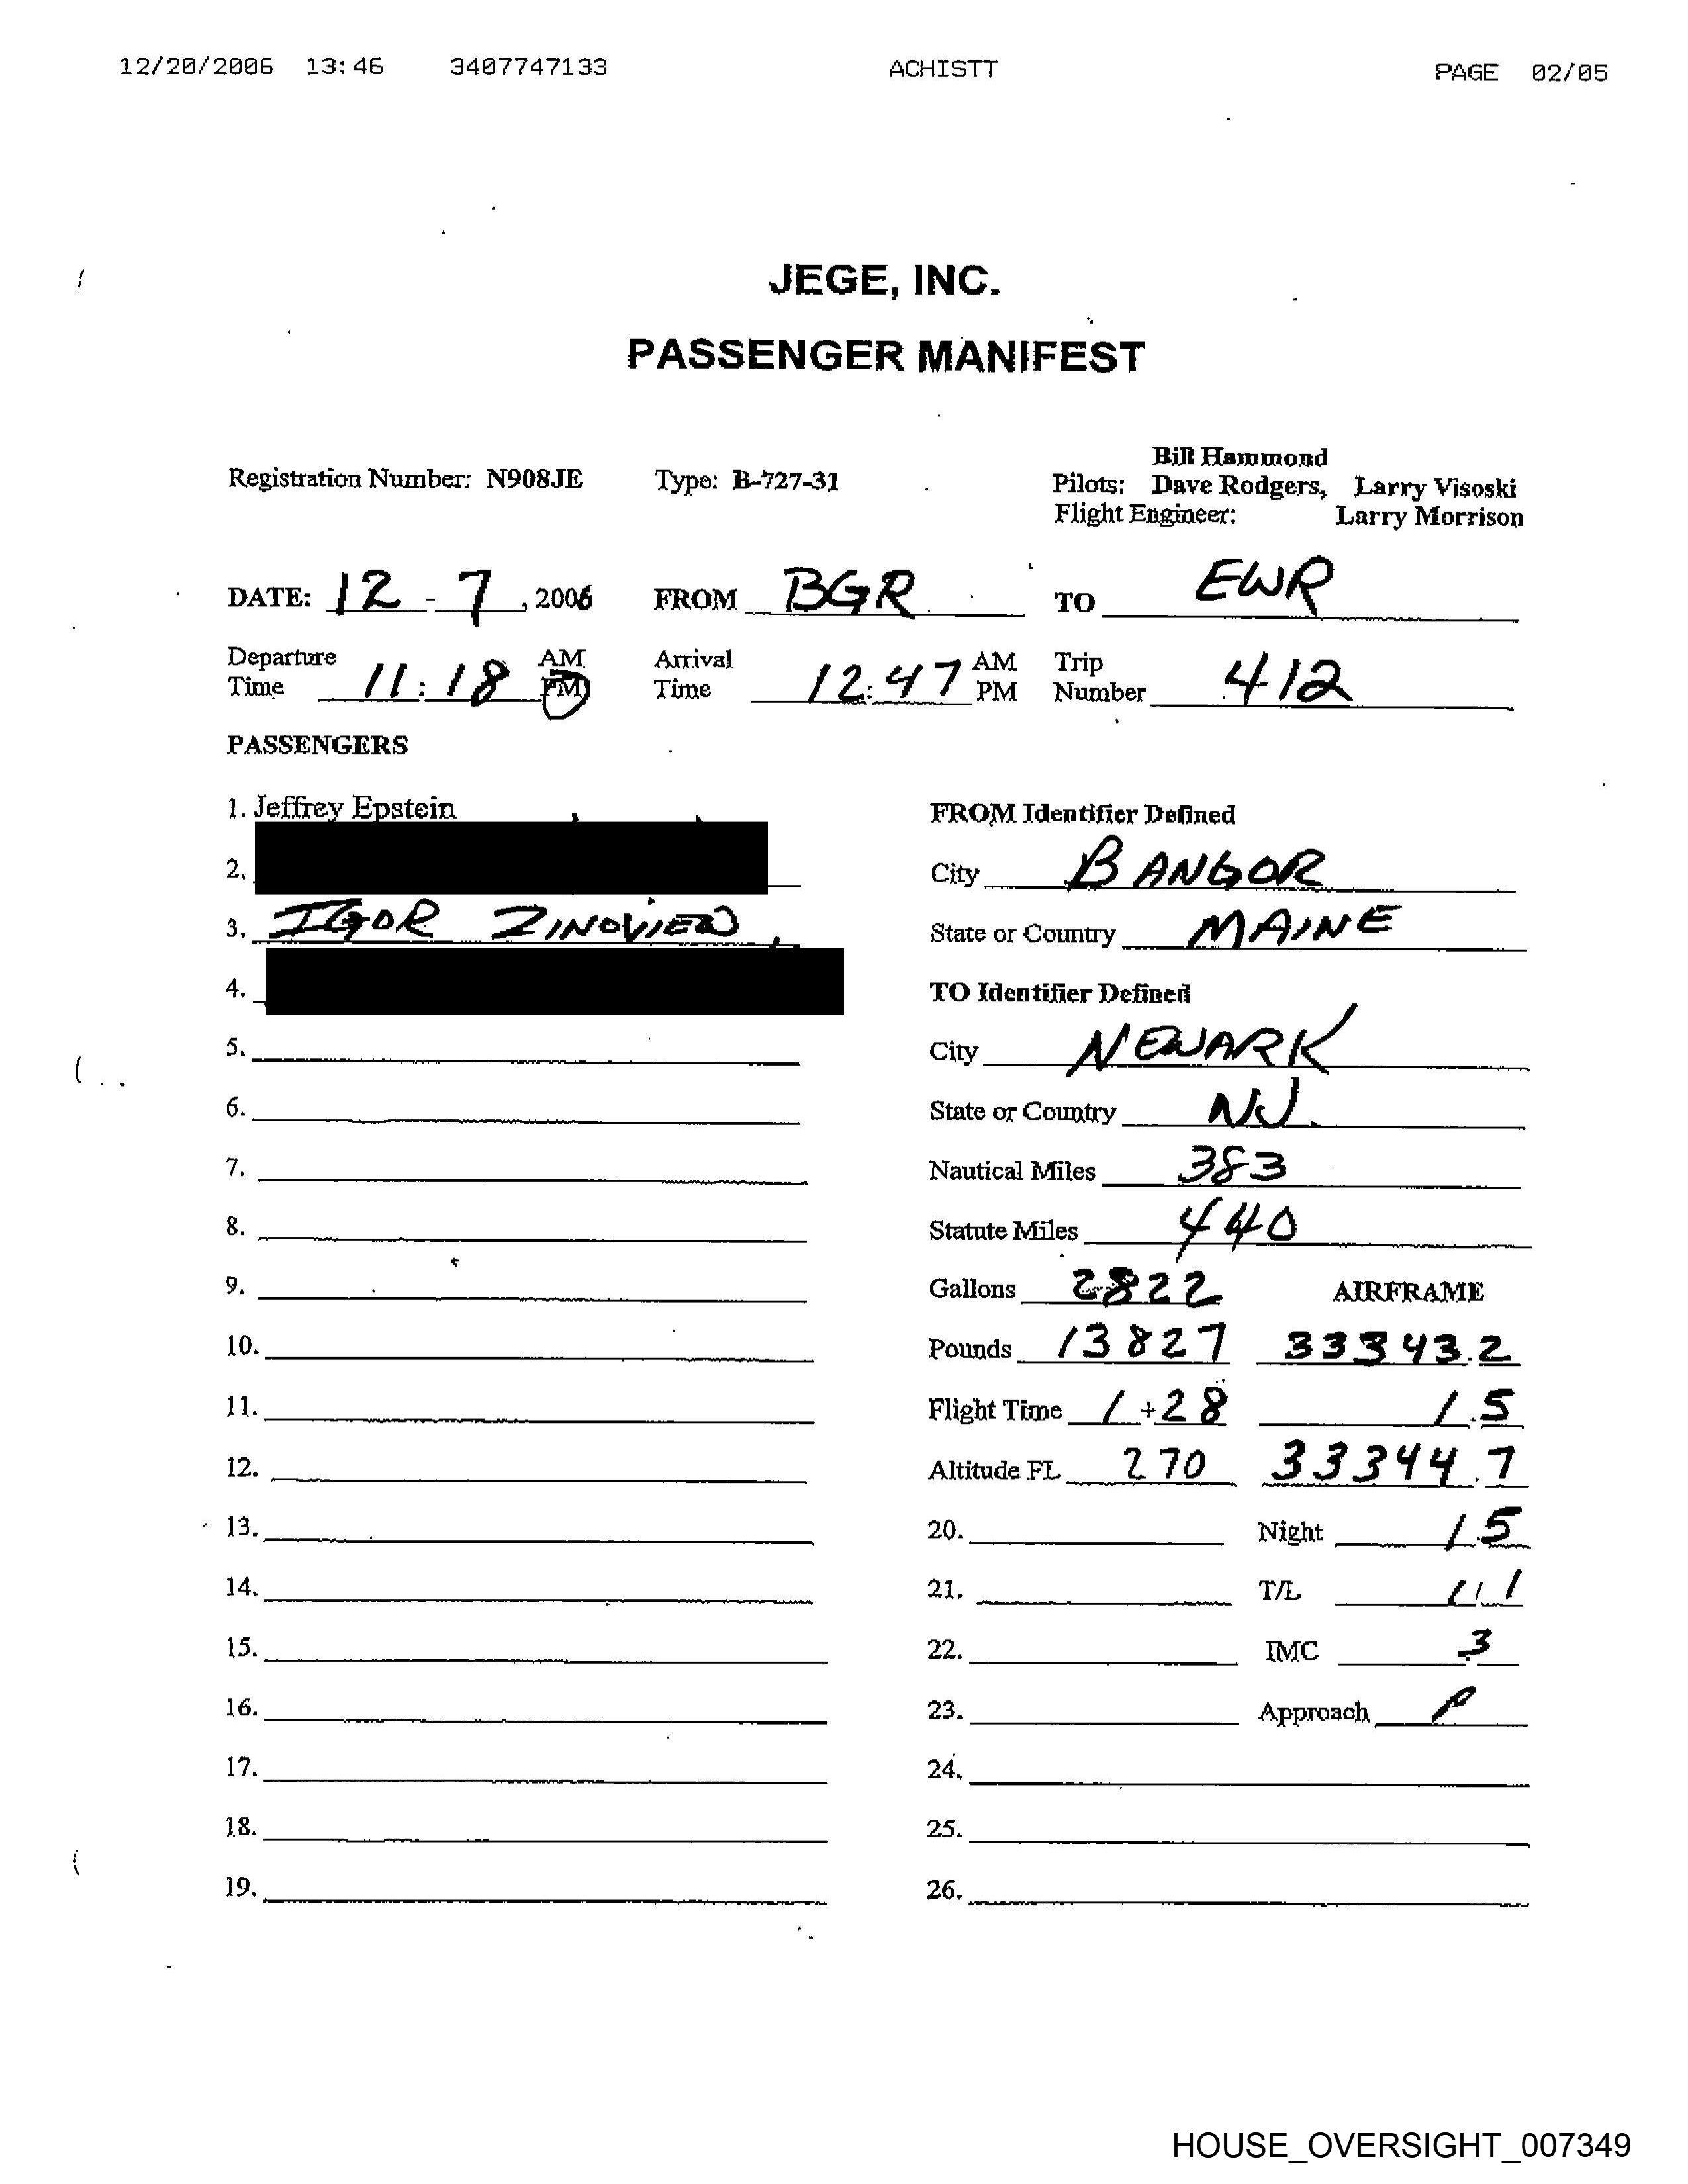 12/20/2006 13:46 3407747133 ACHISTT PAGE 02/05
JEGE, INC.
PASSENGER MANIFEST
Bill Hammond
Registration Number: N908JE Type: B-727-31 Pilots: Dave Rodgers, Larry Visoski
Flight Engineer: Larry Morrison
DATE: 12-7, 2006 FROM BGR TO EWR
Departure Time 11:18 AM PM Arrival Time 12:47 AM PM Trip Number 412
PASSENGERS
1. Jeffrey Epstein FROM Identifier Defined
2. City BANGOR
3. IGOR ZINOVIEW, State or Country MAINE
4. TO Identifier Defined
5. City NEWARK
6. State or Country NJ.
7. Nautical Miles 383
8. Statute Miles 440
9. Gallons 2822 AIRFRAME
10. Pounds 13827 33343.2
11. Flight Time 1+28 1.5
12. Altitude FL 270 33344.7
13. 20. Night 1.5
14. 21. T/L 1/1
15. 22. IMC .3
16. 23. Approach P
17. 24.
18. 25.
19. 26.
HOUSE_OVERSIGHT_007349